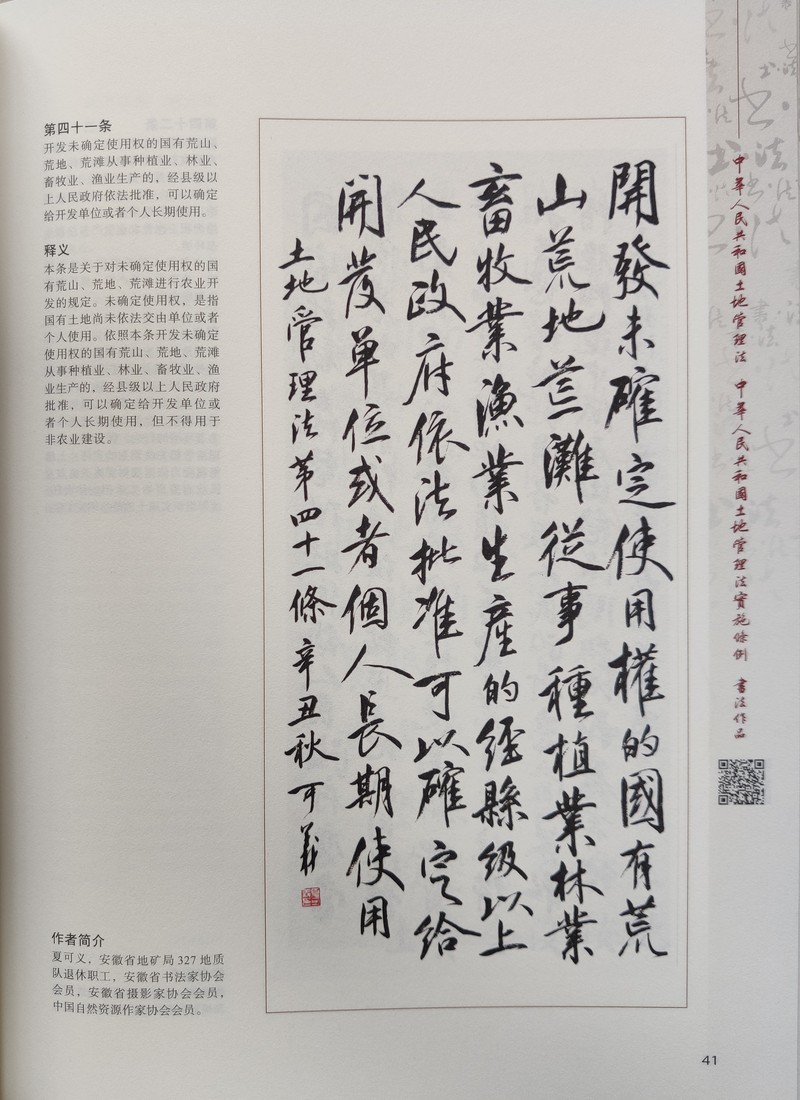 第四十一条
开发未确定使用权的国有荒山、
荒地、荒滩从事种植业、林业、
畜牧业、渔业生产的，经县级以
上人民政府依法批准，可以确定
给开发单位或者个人长期使用。
释义
本条是关于对未确定使用权的国
有荒山、荒地、荒滩进行农业开
发的规定。未确定使用权，是指
国有土地尚未依法交由单位或者
个人使用。依照本条开发未确定
使用权的国有荒山、荒地、荒滩
从事种植业、林业、畜牧业、渔
业生产的，经县级以上人民政府
批准，可以确定给开发单位或
者个人长期使用，但不得用于
非农业建设。
開發未確定使用權的國有荒
山荒地荒灘從事種植業林業
畜牧業漁業生產的經縣級以上
人民政府依法批准可以確定給
開發單位或者個人長期使用
土地管理法第四十一條辛丑秋可義
作者简介
夏可义，安徽省地矿局 327 地质
队退休职工，安徽省书法家协会
会员，安徽省摄影家协会会员，
中国自然资源作家协会会员。
中華人民共和國土地管理法 中華人民共和國土地管理法實施條例 書法作品
41